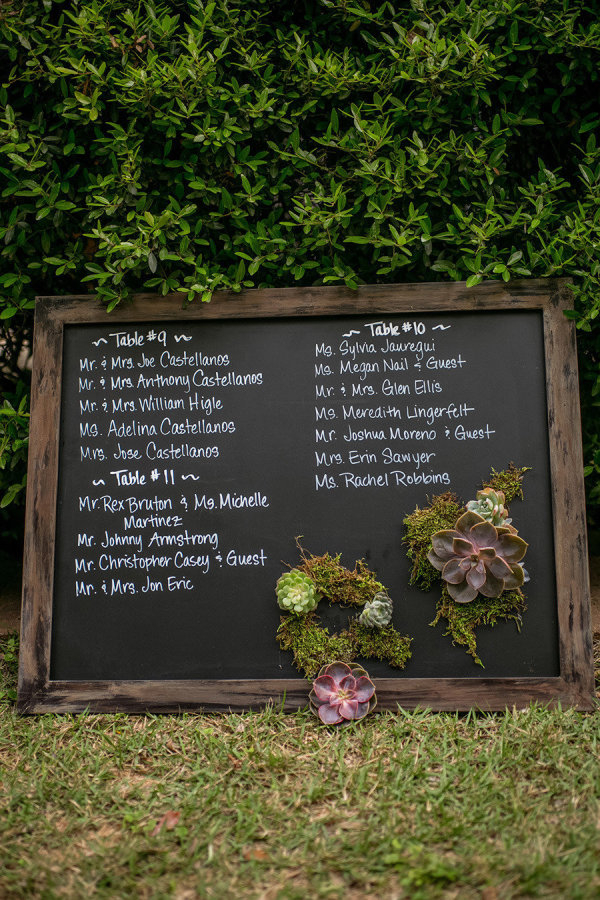 ~ Table #9 ~
Mr. & Mrs. Joe Castellanos
Mr. & Mrs. Anthony Castellanos
Mr. & Mrs. William Higle
Ms. Adelina Castellanos
Mrs. Jose Castellanos
~ Table #11 ~
Mr. Rex Bruton & Ms. Michelle
Martinez
Mr. Johnny Armstrong
Mr. Christopher Casey & Guest
Mr. & Mrs. Jon Eric
~ Table #10 ~
Ms. Sylvia Jauregui
Ms. Megan Nail & Guest
Mr. & Mrs. Glen Ellis
Ms. Meredith Lingerfelt
Mr. Joshua Moreno & Guest
Mrs. Erin Sawyer
Ms. Rachel Robbins